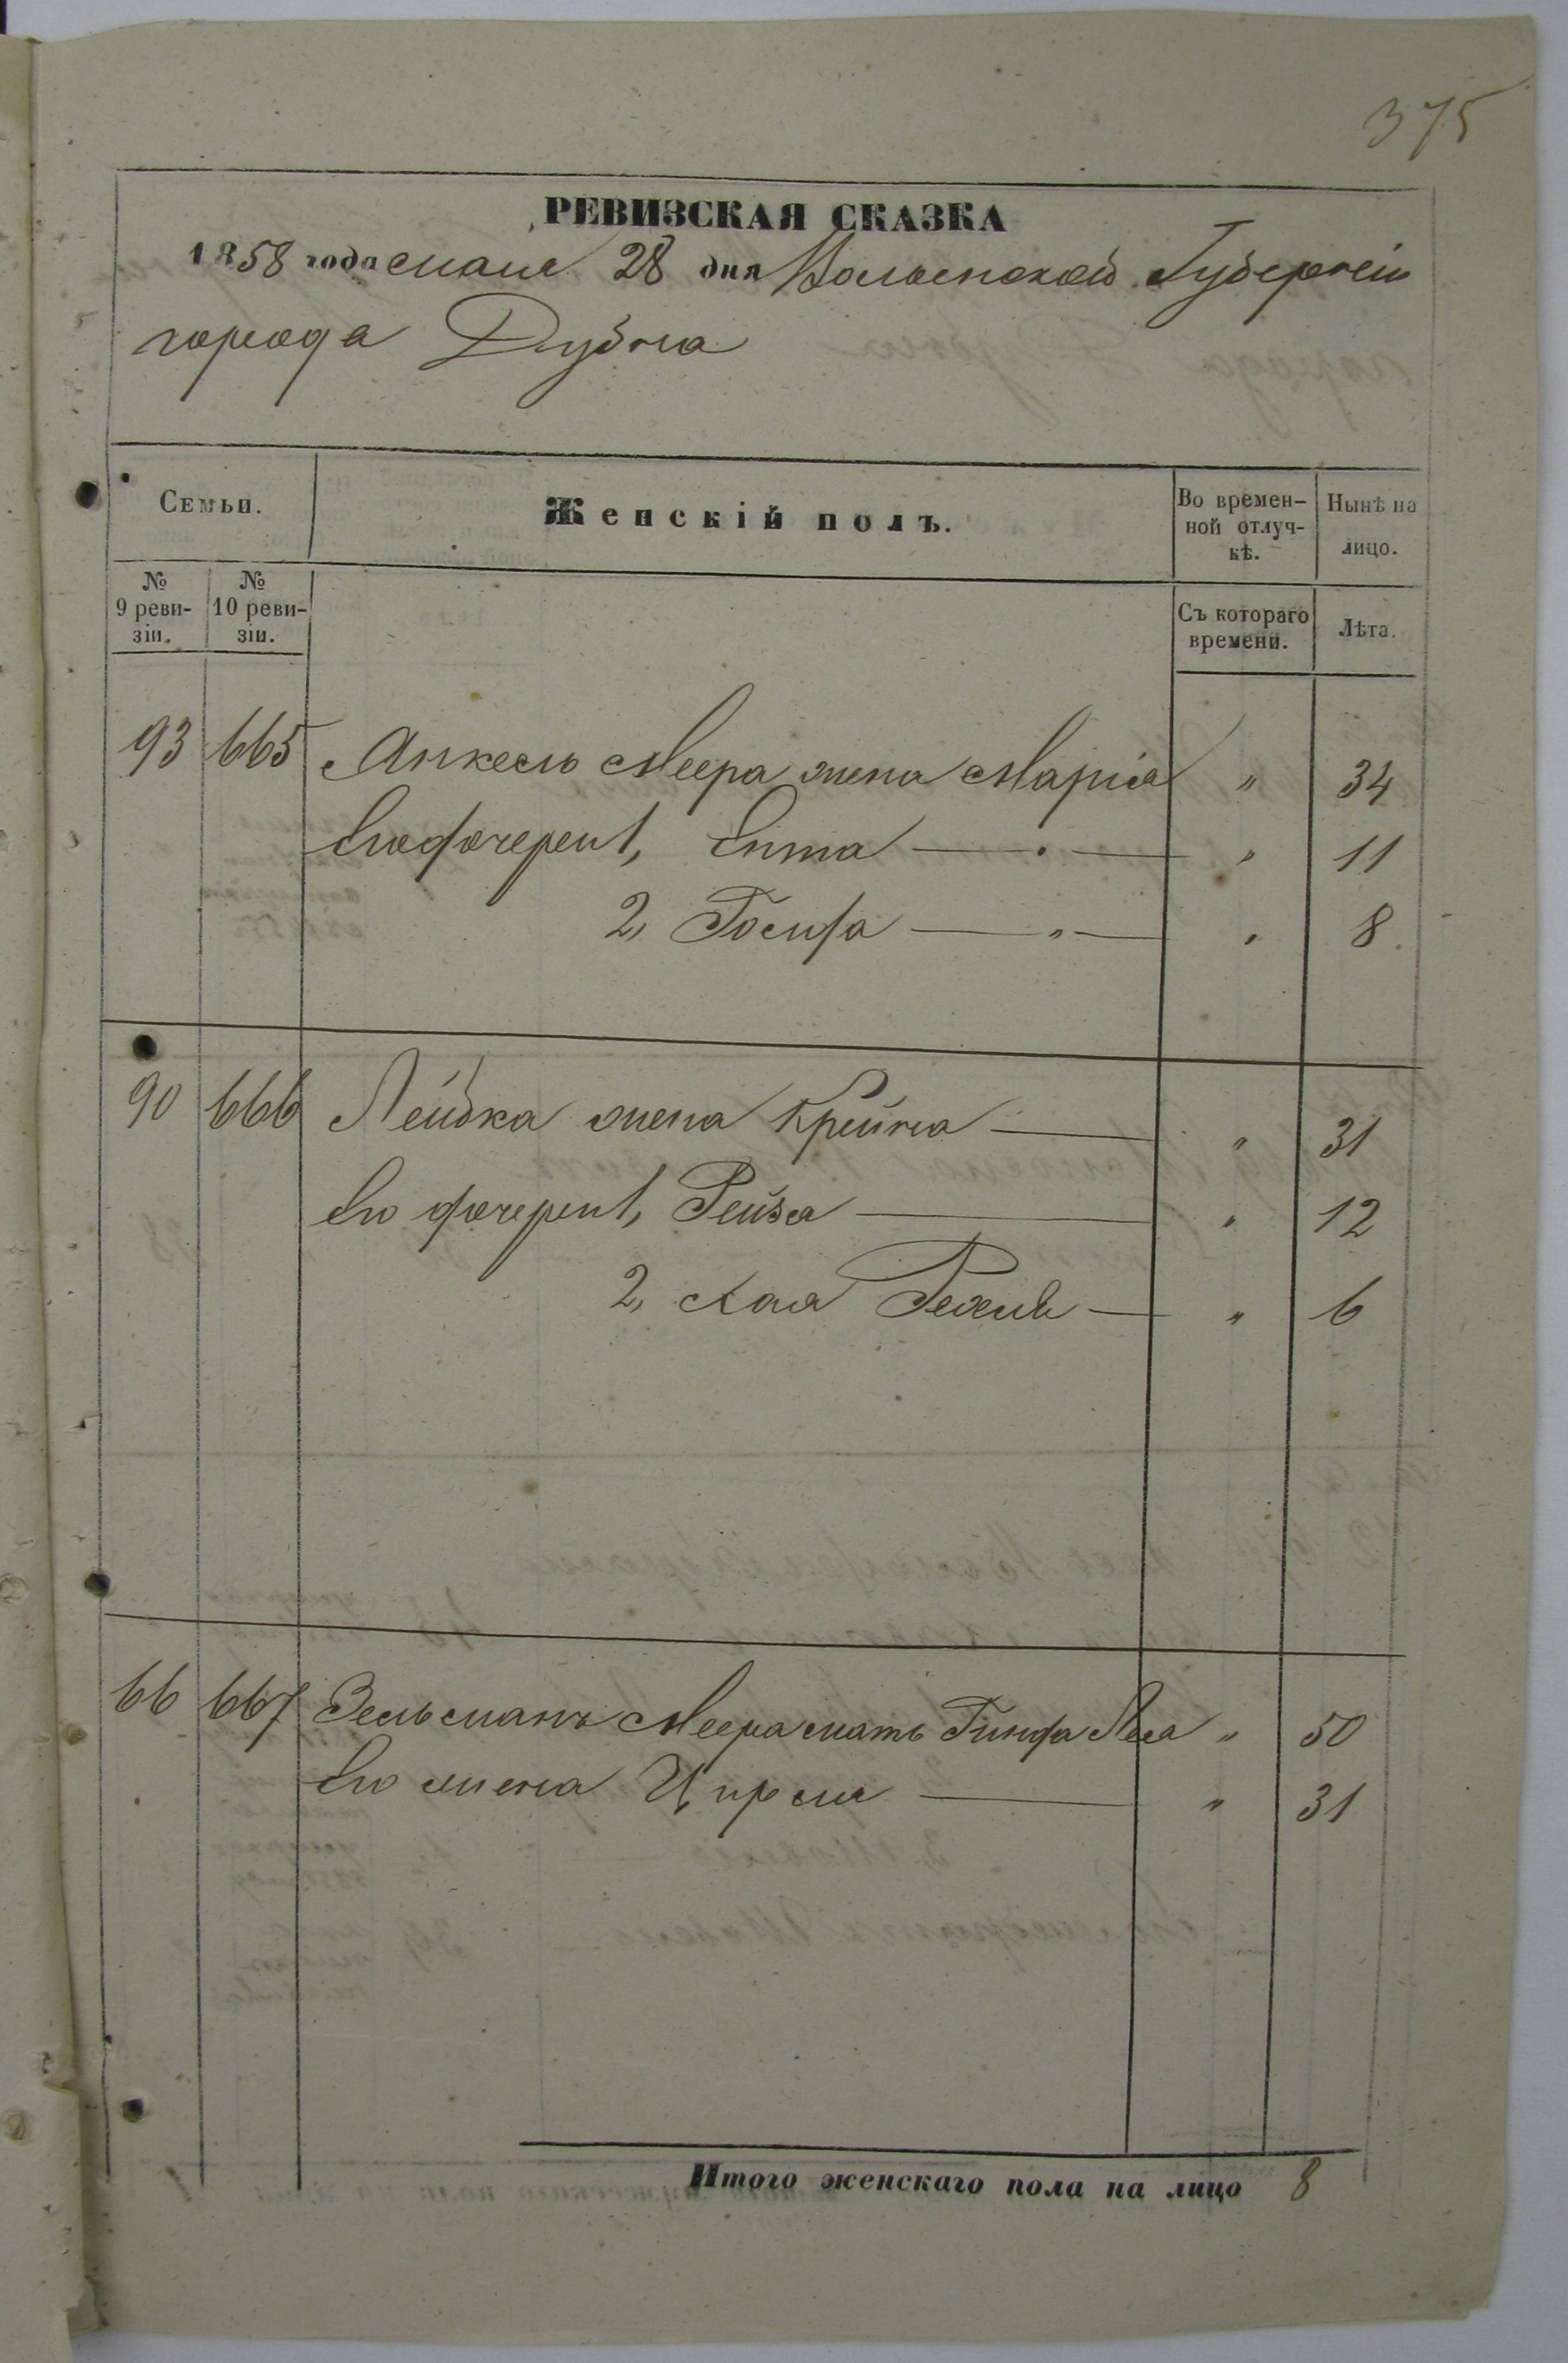 375
РЕВИЗСКАЯ СКАЗКА
1858 года мая 28 дня Волынской Губерніи
города Дубна
Семьи.
Женскій полъ.
Во времен-
ной отлуч-
кѣ.
Нынѣ на
лицо.
№
9 реви-
зіи.
№
10 реви-
зіи.
Съ котораго
времени.
Лѣта.
93 665 Анкель Меера жена Марія " 34
Его дочери 1, Ента " 11
2, " 8
90 666 Лейбка жена Крейна " 31
Его дочери 1, Рейза " 12
2, Хая " 6
66 667 Зельманъ Меера мать Гинда Леа " 50
Его жена Ципра " 31
Итого женскаго пола на лицо 8